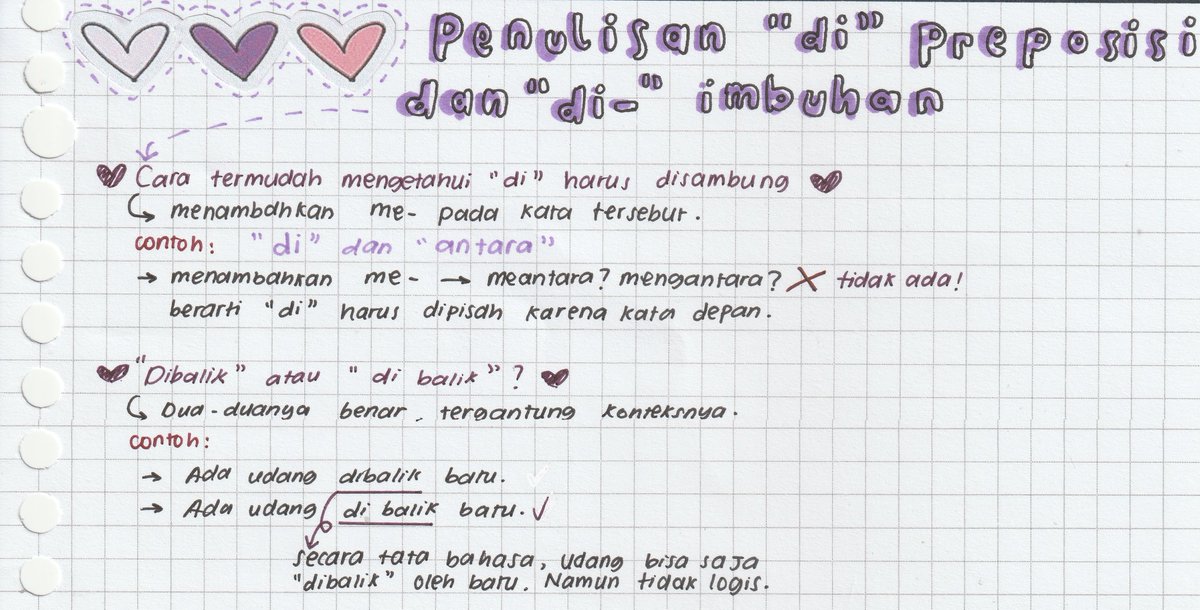 Penulisan "di" Preposisi
dan "di-" imbuhan
Cara termudah mengetahui "di" harus disambung
menambahkan me- pada kata tersebut.
contoh: "di" dan "antara"
→ menambahkan me- → meantara? mengantara? ✗ tidak ada!
berarti "di" harus dipisah karena kata depan.
"Dibalik" atau "di balik"?
Dua-duanya benar, tergantung konteksnya.
contoh:
→ Ada udang dibalik batu.
→ Ada udang di balik batu. ✓
secara tata bahasa, udang bisa saja
"dibalik" oleh batu. Namun tidak logis.